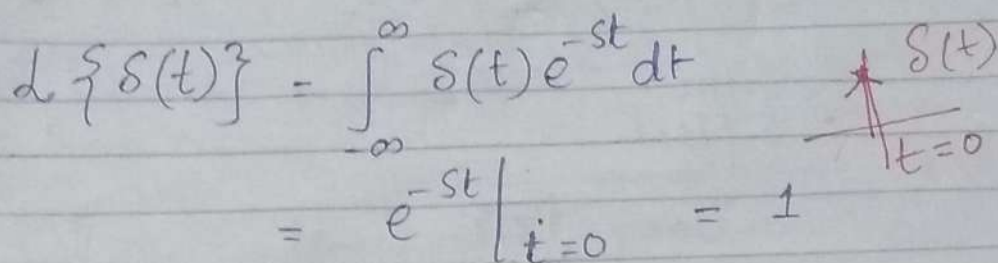 ℒ{δ(t)} = ∫_{-∞}^{∞} δ(t) e^{-st} dt
δ(t)
t=0
= e^{-st} |_{t=0} = 1